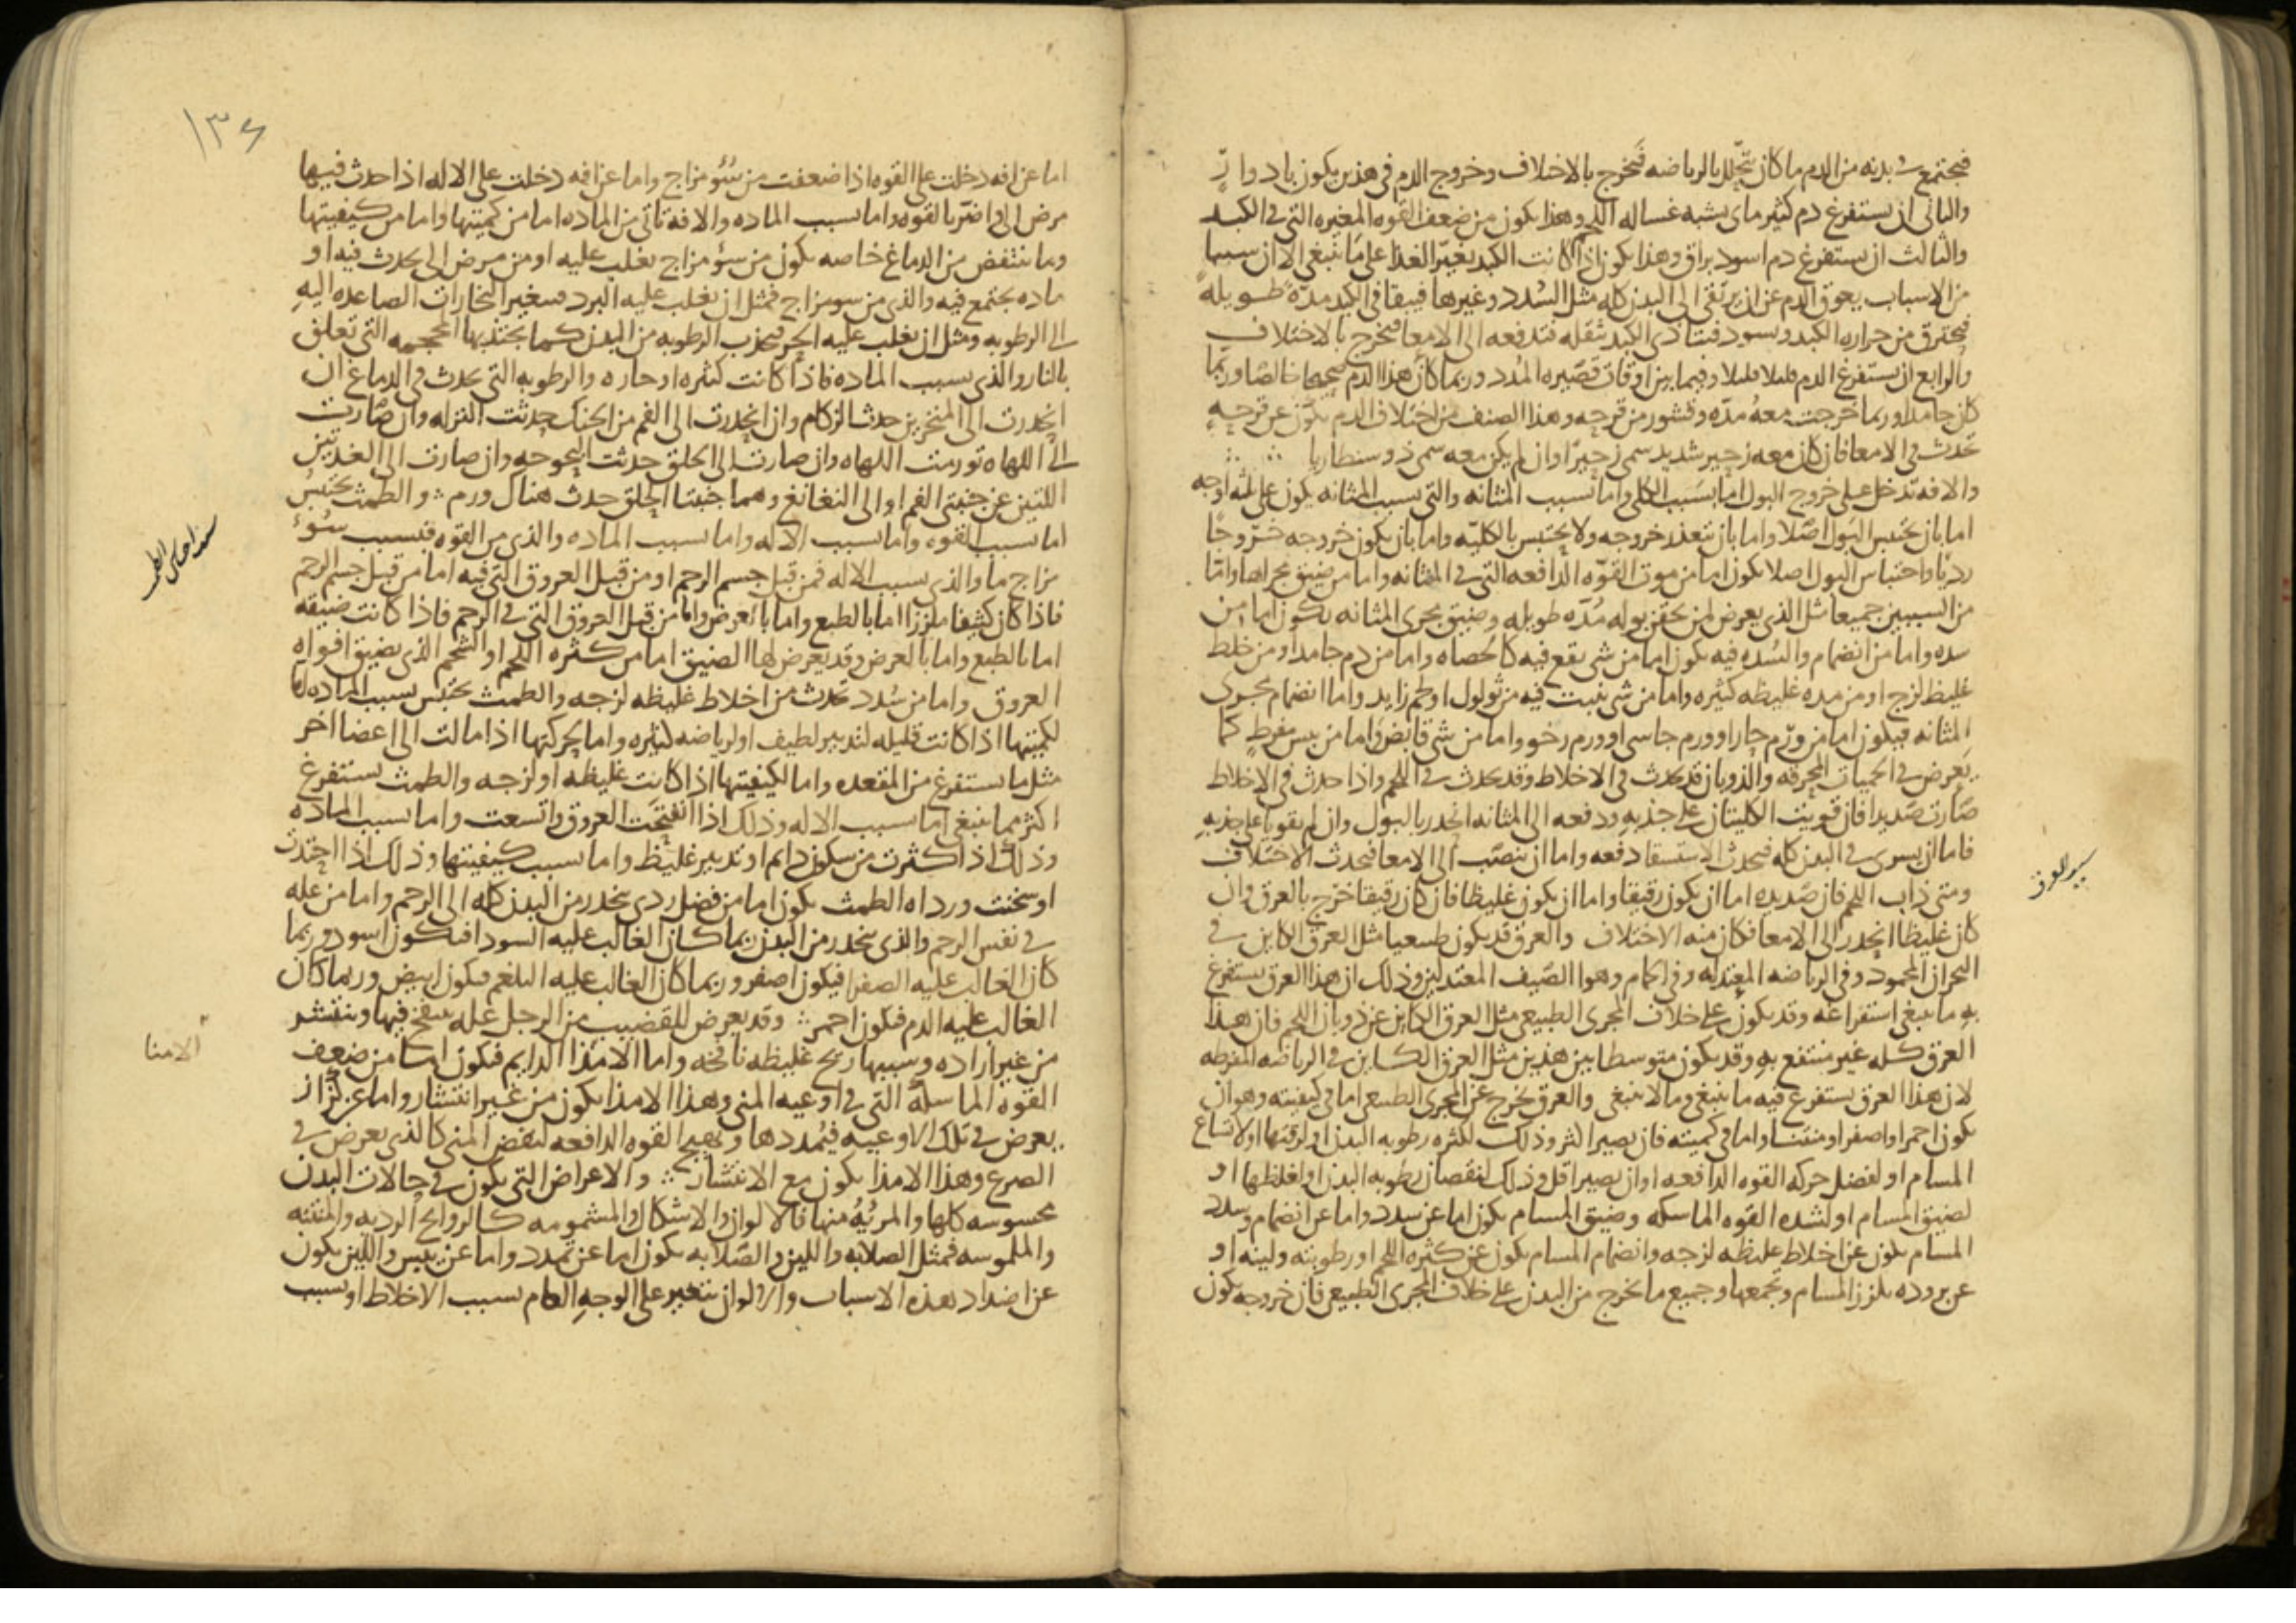 فيجتمع في بدنه من الدم ما كان يتحلل بالرياضه فيخرج بالاختلاف وخروج الدم في هذين يكون بادوار
والثاني ان يستفرغ دم كثير مائي يشبه غساله اللحم وهذا يكون من ضعف القوه المغيره التي في الكبد
والثالث ان يستفرغ دم اسود براق وهذا يكون اذا كانت الكبد تغير الغذا على ما ينبغي الا ان سببا
من الاسباب يعوق الدم عن ان يرتقى الى البدن كله مثل السدد وغيرها فيبقا في الكبد مدة طويلة
فيحترق من حراره الكبد ويسود فتتاذى الكبد بثقله فتدفعه الى الامعا فيخرج بالاختلاف
والرابع ان يستفرغ الدم قليلا قليلا وفيما بين اوقات قصيره المدد وربما كان هذا الدم صحيحا خالصا وربما
كان جامدا وربما خرجت معه مده وقشور من قرحه وهذا الصنف من اختلاف الدم يكون عن قرحه
تحدث في الامعا فان كان معه زحير شديد سمى زحيرا وان لم يكن معه سمى ذوسنطاريا
والافه تدخل على خروج البول اما بسبب الكلى واما بسبب المثانه والتي بسبب المثانه يكون على ثلثه اوجه
اما بان يحتبس البول اصلا واما بان يتعذر خروجه ولا يحتبس بالكليه واما بان يكون خروجه خروجا
رديا واحتباس البول اصلا يكون اما من موت القوه الدافعه التي في المثانه واما من ضيق مجراها واما
من السببين جميعا مثل الذي يعرض لمن يحقن بوله مده طويله وضيق مجرى المثانه يكون اما من
سده واما من انضمام والسده فيه يكون اما من شي يقع فيه كالحصاه واما من دم جامد او من خلط
غليظ لزج او من مده غليظه كثيره واما من شي ينبت فيه من ثولول او لحم زايد واما انضمام مجرى
المثانه فيكون اما من ورم حار او ورم جاسي او ورم رخو واما من شي قابض واما من يبس مفرط كما
يعرض في الحميات المحرقه والذوبان قد يحدث في الاخلاط وقد يحدث في اللحم واذا حدث في الاخلاط
صارت صديدا فان قويت الكليتان على جذبه ودفعه الى المثانه انحدر بالبول وان لم يقويا على جذبه
فاما ان يسرى في البدن كله فيحدث الاستسقا دفعه واما ان ينصب الى الامعا فيحدث الاختلاف
ومتى ذاب اللحم فان صديده اما ان يكون رقيقا واما ان يكون غليظا فان كان رقيقا خرج بالعرق وان
كان غليظا انحدر الى الامعا فكان منه الاختلاف والعرق قد يكون طبيعيا مثل العرق الكاين في
البحران المحمود وفي الرياضه المعتدله وفي الحمام وهوا الصيف المعتدلين وذلك ان هذا العرق يستفرغ
به ما ينبغي استفراغه وقد يكون على خلاف المجرى الطبيعي مثل العرق الكاين عن ذوبان اللحم فان هذا
العرق كله غير منتفع به وقد يكون متوسطا بين هذين مثل العرق الكاين في الرياضه المفرطه
لان هذا العرق يستفرغ فيه ما ينبغي وما لا ينبغي والعرق يخرج عن المجرى الطبيعي اما في كيفيته وهو ان
يكون احمر او اصفر او منتنا واما في كميته فان يصير اكثر وذلك لكثره رطوبه البدن او لرقتها او لاتساع
المسام او لفضل حركه القوه الدافعه او ان يصير اقل وذلك لنقصان رطوبه البدن او لغلظها او
لضيق المسام او لشده القوه الماسكه وضيق المسام يكون اما عن سدد واما عن انضمام وسدد
المسام يكون عن اخلاط غليظه لزجه وانضمام المسام يكون عن كثره اللحم او رطوبته ولينه او
عن بروده يلزز المسام وتجمعها وجميع ما يخرج من البدن على خلاف المجرى الطبيعي فان خروجه يكون
١٣٤
اما عن افه دخلت على القوه اذا ضعفت من سؤ مزاج واما عن افه دخلت على الاله اذا حدث فيها
مرض الي اضر بالقوه واما بسبب الماده والافه تاتي من الماده اما من كميتها واما من كيفيتها
وما ينتفض من الدماغ خاصه يكون من سؤ مزاج يغلب عليه او من مرض الي يحدث فيه او
ماده يجتمع فيه والذي من سو مزاج فمثل ان يغلب عليه البرد فيغير البخارات الصاعده اليه
الى الرطوبه ومثل ان يغلب عليه الحر فيجذب الرطوبه من البدن كما يجتذبها المحجمه التي تعلق
بالنار والذي بسبب الماده فاذا كانت كثيره او حاره والرطوبه التي تحدث في الدماغ ان
انحدرت الى المنخرين حدث الزكام وان انحدرت الى الفم من الحنك حدثت النزله وان صارت
الى اللهاه تورمت اللهاه وان صارت الى الحلق حدثت البحوحه وان صارت الى الغدتين
اللتين عن جنبتي الفم او الى النغانغ وهما جنبتا الحلق حدث هناك ورم والطمث يحتبس
اما بسبب القوه واما بسبب الاله واما بسبب الماده والذي من القوه فبسبب سوء
مزاج ما والذي بسبب الاله فمن قبل جسم الرحم او من قبل العروق التي فيه اما من قبل جسم الرحم
فاذا كان كثيفا ملززا اما بالطبع واما بالعرض واما من قبل العروق التي في الرحم فاذا كانت ضيقه
اما بالطبع واما بالعرض وقد يعرض لها الضيق اما من كثره اللحم او الشحم الذي يضيق افواه
العروق واما من سدد تحدث من اخلاط غليظه لزجه والطمث يحتبس بسبب الماده اما
لكميتها اذا كانت قليله لتدبير لطيف او لرياضه كثيره واما لحركتها اذا مالت الى اعضا اخر
مثل ما يستفرغ من المقعده واما لكيفيتها اذا كانت غليظه او لزجه والطمث يستفرغ
اكثر مما ينبغي اما بسبب الاله وذلك اذا انفتحت العروق واتسعت واما بسبب الماده
وذلك اذا كثرت من سكون دايم او تدبير غليظ واما بسبب كيفيتها وذلك اذا احتدت
او سخنت ورداه الطمث يكون اما من فضل ردي ينحدر من البدن كله الى الرحم واما من عله
في نفس الرحم والذي ينحدر من البدن ربما كان الغالب عليه السودا فيكون اسود وربما
كان الغالب عليه الصفرا فيكون اصفر وربما كان الغالب عليه البلغم فيكون ابيض وربما كان
الغالب عليه الدم فيكون احمر وقد يعرض للقضيب من الرجل عله ينتفخ فيها وينتشر
من غير اراده وسببها ريح غليظه نافخه واما الامذا الدايم فيكون اما من ضعف
القوه الماسكه التي في اوعيه المني وهذا الامذا يكون من غير انتشار واما عن كزاز
يعرض في تلك الاوعيه فيمددها ويهيج القوه الدافعه لنفض المني كالذي يعرض في
الصرع وهذا الامذا يكون مع الانتشار والاعراض التي يكون في حالات البدن
محسوسه كلها والمرئيه منها فالالوان والاشكال والمشمومه كالروايح الرديه والمنتنه
والملموسه فمثل الصلابه واللين والصلابه يكون اما عن تمدد واما عن يبس واللين يكون
عن اضداد هذه الاسباب والالوان يتغير على الوجه العام بسبب الاخلاط او بسبب
الامنا